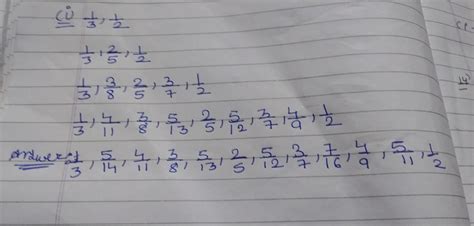 (i) 1/3, 1/2
1/3, 2/5, 1/2
1/3, 3/8, 2/5, 3/7, 1/2
1/3, 4/11, 3/8, 5/13, 2/5, 5/12, 3/7, 4/9, 1/2
Answer:- 1/3, 5/14, 4/11, 3/8, 5/13, 2/5, 5/12, 3/7, 7/16, 4/9, 5/11, 1/2